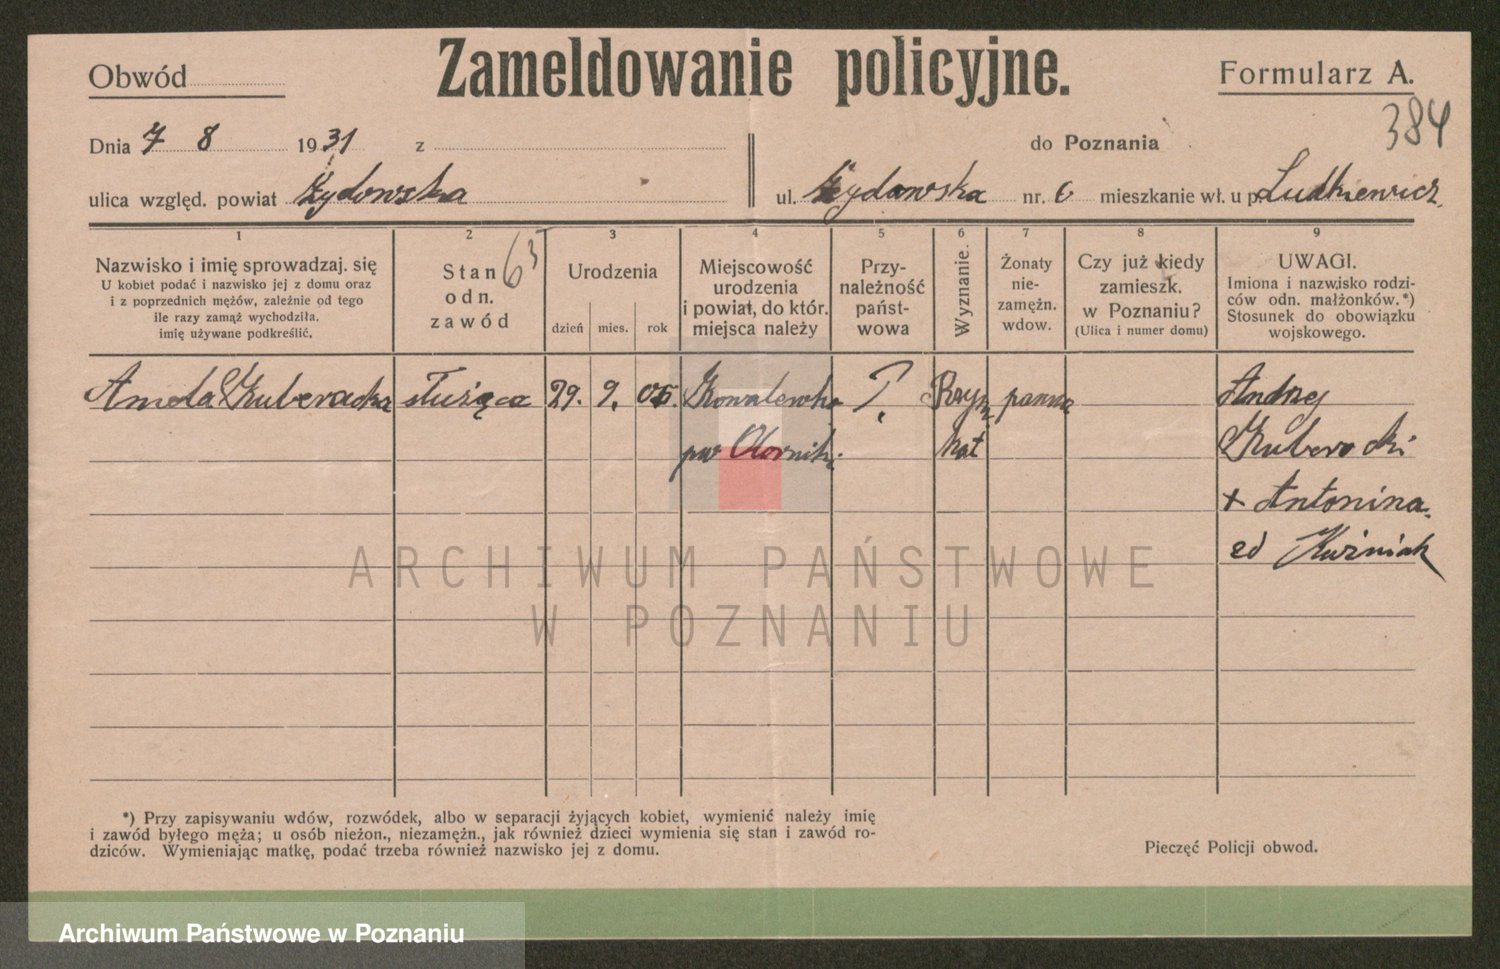 Obwód
Zameldowanie policyjne.
Formularz A.
384
Dnia 7 8 1931 z
do Poznania
ulica względ. powiat Żydowska
ul. Żydowska nr. 6 mieszkanie wł. u p. Ludkiewicz
1 2 3 4 5 6 7 8 9
65
Nazwisko i imię sprowadzaj. się
U kobiet podać i nazwisko jej z domu oraz
i z poprzednich mężów, zależnie od tego
ile razy zamąż wychodziła.
imię używane podkreślić.
Stan
odn.
zawód
Urodzenia
dzień mies. rok
Miejscowość
urodzenia
i powiat, do któr.
miejsca należy
Przy-
należność
państ-
wowa
Wyznanie.
Żonaty
nie-
zamężn.
wdow.
Czy już kiedy
zamieszk.
w Poznaniu?
(Ulica i numer domu)
UWAGI.
Imiona i nazwisko rodzi-
ców odn. małżonków.*)
Stosunek do obowiązku
wojskowego.
służąca 29. 9. 05. Kowalewko ? Rzym panna Andrzej
pow Oborniki kat
+ Antonina
zd Kuźniak
ARCHIWUM PAŃSTWOWE
W POZNANIU
*) Przy zapisywaniu wdów, rozwódek, albo w separacji żyjących kobiet, wymienić należy imię
i zawód byłego męża; u osób nieżon., niezamężn., jak również dzieci wymienia się stan i zawód ro-
dziców. Wymieniając matkę, podać trzeba również nazwisko jej z domu.
Pieczęć Policji obwod.
Archiwum Państwowe w Poznaniu